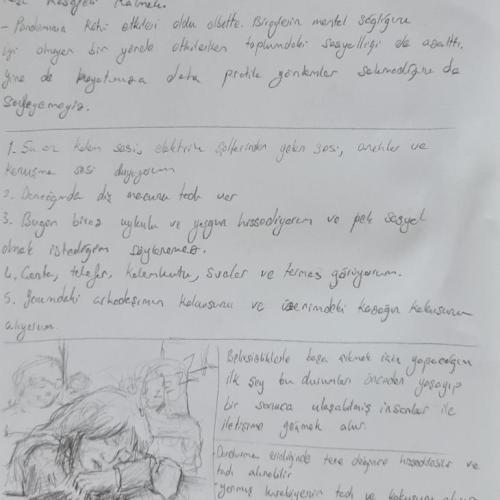 Kalmak.
- Pandeminin kötü etkileri oldu elbette. Bireylerin mental sağlığını
iyi olmayan bir yönde etkilerken toplumdaki sosyalliği de azalttı.
Yine de hayatımıza daha pratik yöntemler sokmadığını da
söyleyemeyiz.
1. Şu an kalem sesi, elektrik gelen sesi, ve
konuşma sesi duyuyorum
2. Damağımda diş macunu tadı var
3. Bugün biraz uykulu ve yorgun hissediyorum ve pek sosyal
olmak istediğim söylenemez.
4. Çanta, telefon, kalemkutu, sıralar ve termos görüyorum.
5. Yanımdaki arkadaşımın kokusunu ve üzerimdeki kazağın kokusunu
alıyorum
Belirsizliklerle başa çıkmak için yapacağım
ilk şey bu durumları önceden yaşayıp
bir sonuca ulaşabilmiş insanlar ile
iletişime geçmek olur.
Dondurma eridiğinde tene değince ve
tadı alınabilir
tadı ve kokusunu